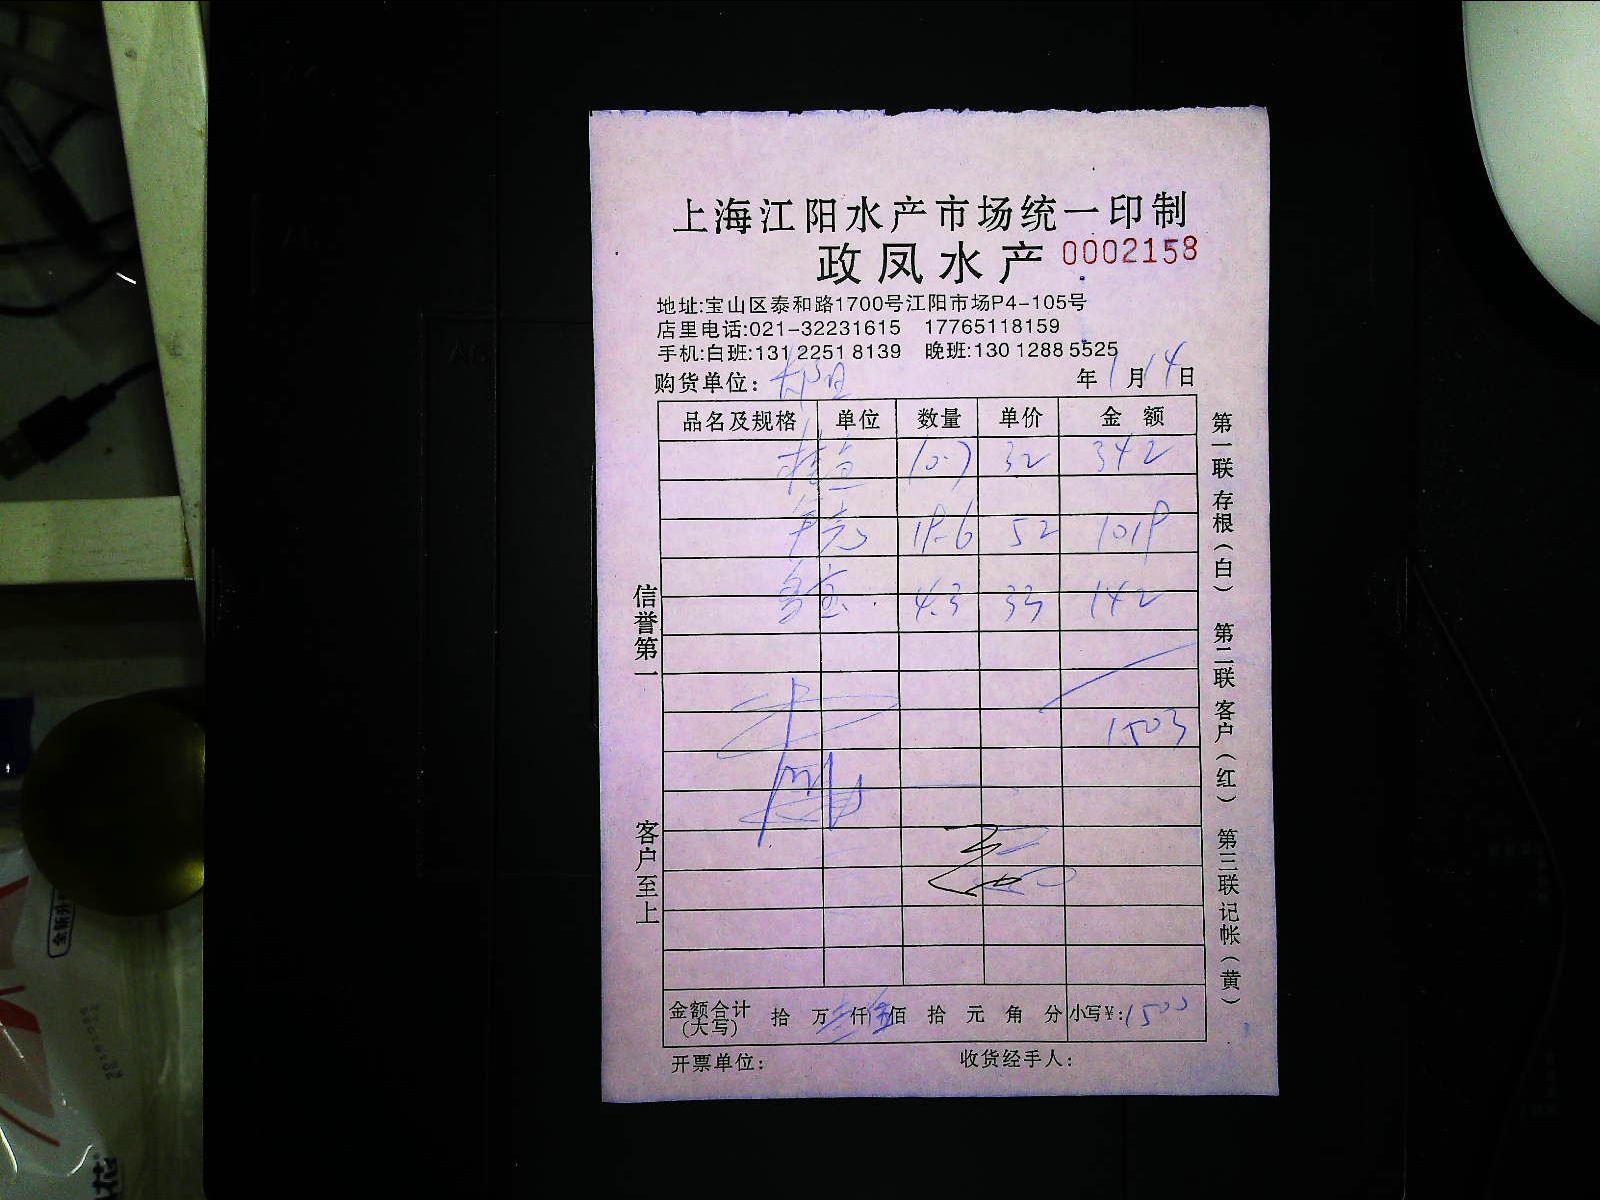 上海江阳水产市场统一印制
政凤水产 0002158
地址:宝山区泰和路1700号江阳市场P4-105号
店里电话:021-32231615 17765118159
手机:白班:131 2251 8139 晚班:130 1288 5525
购货单位: 年 1 月 14 日
品名及规格 单位 数量 单价 金 额
桂鱼 10.7 32 342
19.6 52 1019
多宝 4.3 33 142
1503
金额合计(大写) 拾 万 仟 伍 佰 拾 元 角 分 小写¥:1500
开票单位: 收货经手人:
信誉第一
客户至上
第一联 存根(白) 第二联 客户(红) 第三联 记帐(黄)
全新升